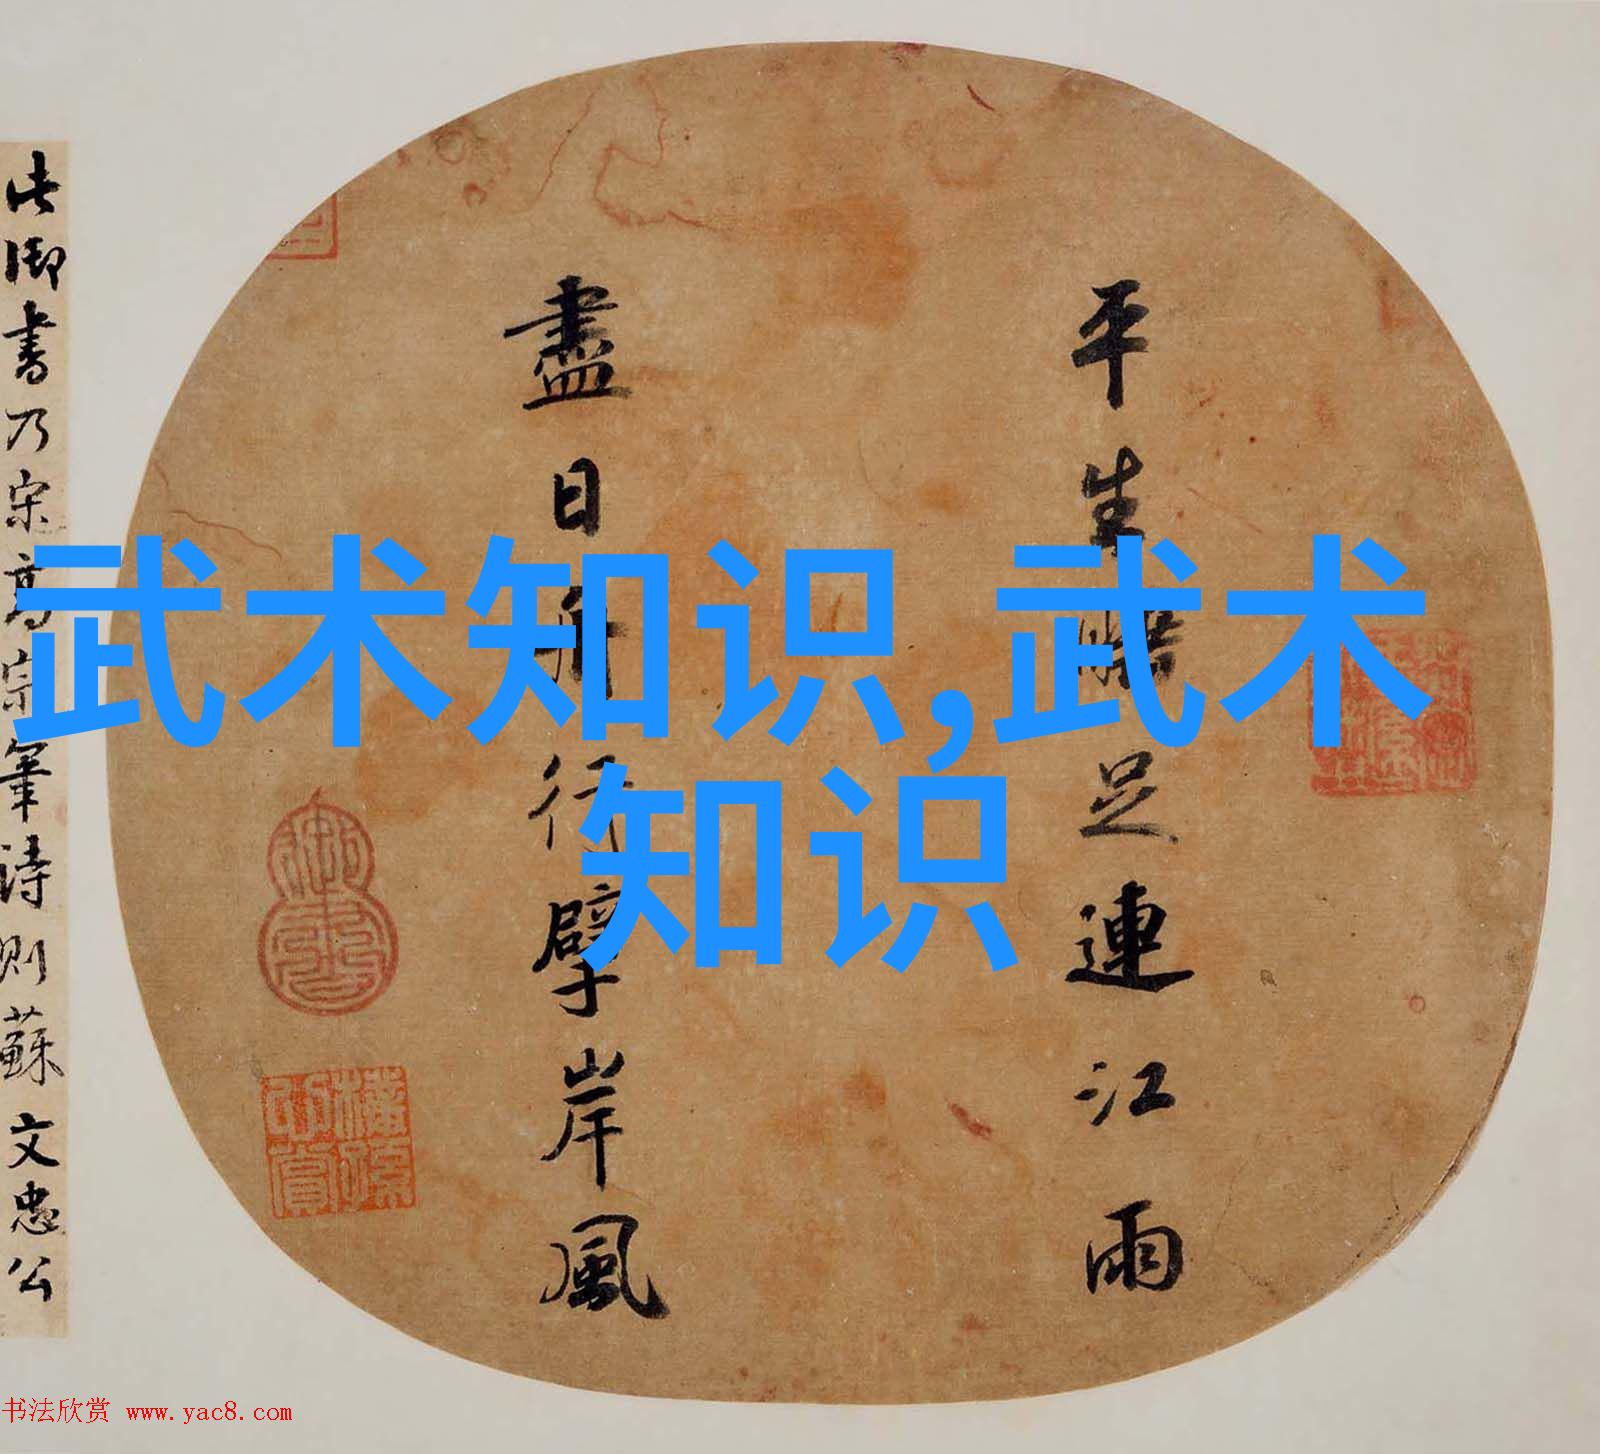 平生睡足連江雨
盡日舟行擘岸風
此御書乃宋高宗筆詩則蘇文忠公
武术知识,武术
知识
书法欣赏 www.yac8.com